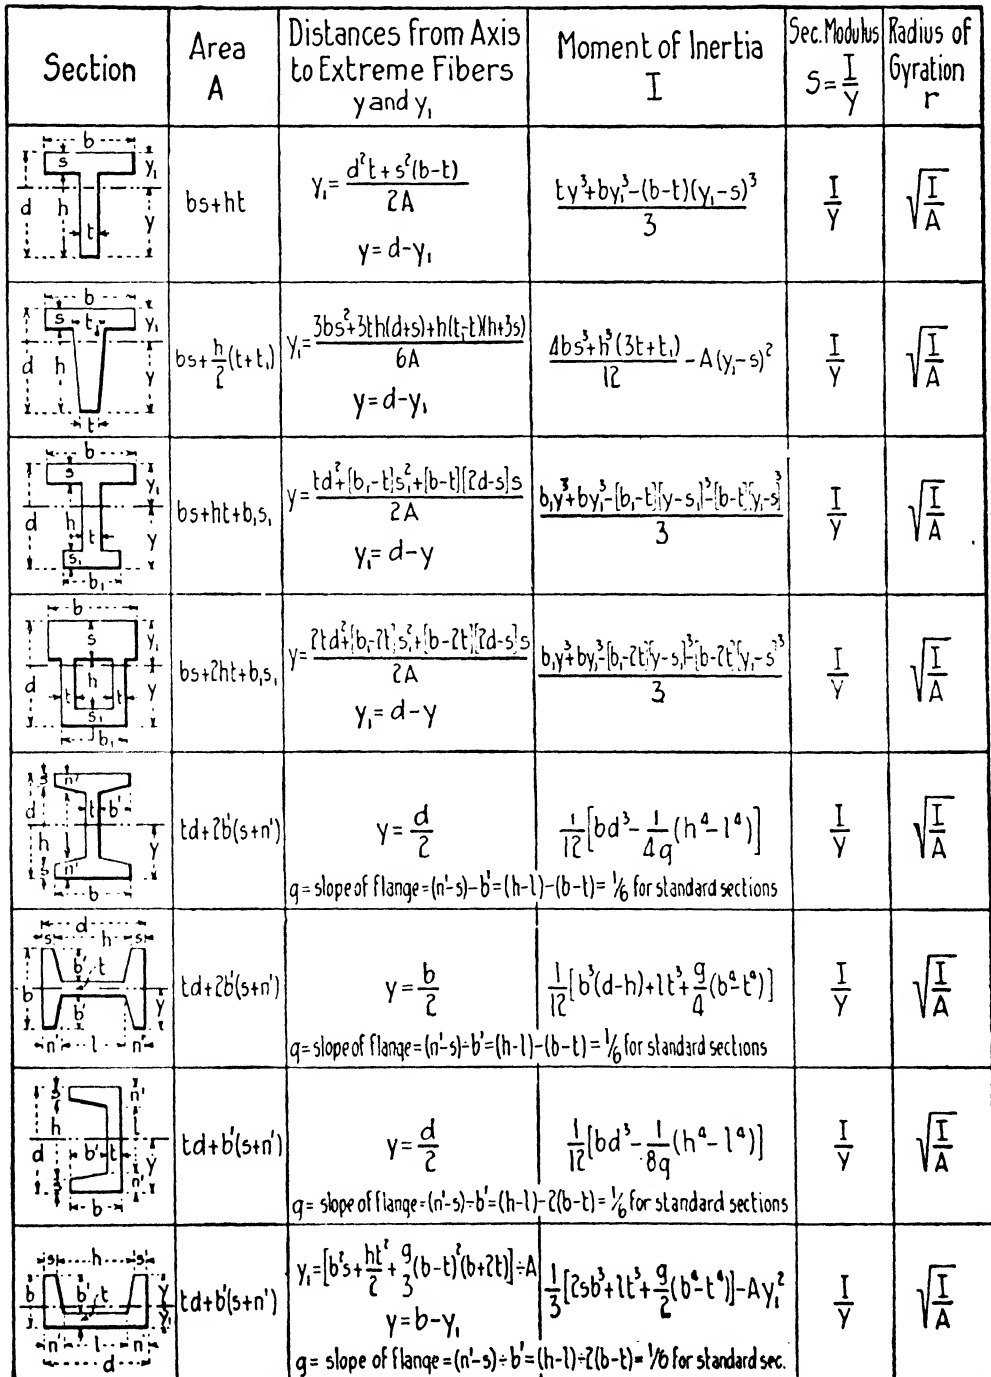 Section
Area
A
Distances from Axis
to Extreme Fibers
y and y₁
Moment of Inertia
I
Sec. Modulus
S = I/Y
Radius of
Gyration
r
b
s
y₁
d
h
t
y
bs+ht
y₁ = (d²t + s²(b-t))/2A
y = d-y₁
(ty³+by₁³-(b-t)(y₁-s)³)/3
I/Y
√(I/A)
b
s
t₁
y₁
d
h
y
t
bs+h/2(t+t₁)
y₁ = (3bs²+3th(d+s)+h(t₁-t)(h+3s))/6A
y = d-y₁
(4bs³+h³(3t+t₁))/12 - A(y₁-s)²
I/Y
√(I/A)
b
s
y₁
d
h
t
y
s₁
b₁
bs+ht+b₁s₁
y = (td²+[b₁-t]s₁²+[b-t][2d-s]s)/2A
y₁ = d-y
(b₁y³+by₁³-[b₁-t][y-s₁]³-[b-t][y₁-s]³)/3
I/Y
√(I/A)
b
s
y₁
d
h
t
t
y
s₁
b₁
bs+2ht+b₁s₁
y = (2td²+[b₁-2t]s₁²+[b-2t][2d-s]s)/2A
y₁ = d-y
(b₁y³+by₁³-[b₁-2t][y-s₁]³-[b-2t][y₁-s]³)/3
I/Y
√(I/A)
s
n'
d
t
b'
h
y
s
n'
b
td+2b'(s+n')
y = d/2
1/12[bd³-1/4g(h⁴-l⁴)]
g = slope of flange = (n'-s)-b' = (h-l)-(b-t) = 1/6 for standard sections
I/Y
√(I/A)
d
s
h
s
b'
t
b
b'
y
n'
l
n'
td+2b'(s+n')
y = b/2
1/12[b³(d-h)+lt³+g/4(b⁴-t⁴)]
g = slope of flange = (n'-s)÷b' = (h-l)-(b-t) = 1/6 for standard sections
I/Y
√(I/A)
s
n'
h
l
d
b'
t
y
s
n'
b
td+b'(s+n')
y = d/2
1/12[bd³-1/8g(h⁴-l⁴)]
g = slope of flange = (n'-s)÷b' = (h-l)-2(b-t) = 1/6 for standard sections
I/Y
√(I/A)
s
h
s
b
b'
t
y
y₁
n'
l
n'
d
td+b'(s+n')
y₁ = [b²s+ht²/2+g/3(b-t)²(b+2t)]÷A
y = b-y₁
1/3[2sb³+lt³+g/2(b⁴-t⁴)]-Ay₁²
g = slope of flange = (n'-s)÷b' = (h-l)÷2(b-t) = 1/6 for standard sec.
I/Y
√(I/A)